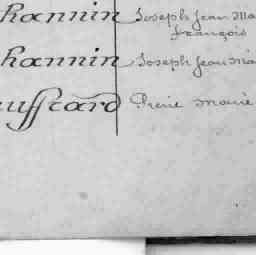 hannin Joseph Jean Ma
françois
hannin Joseph Jean Ma
uffard Pierre marie